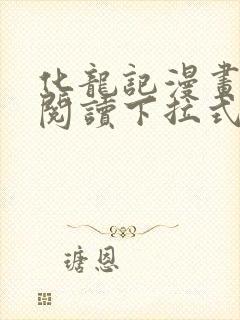 化龍記漫畫
閱讀下拉式
瑭恩